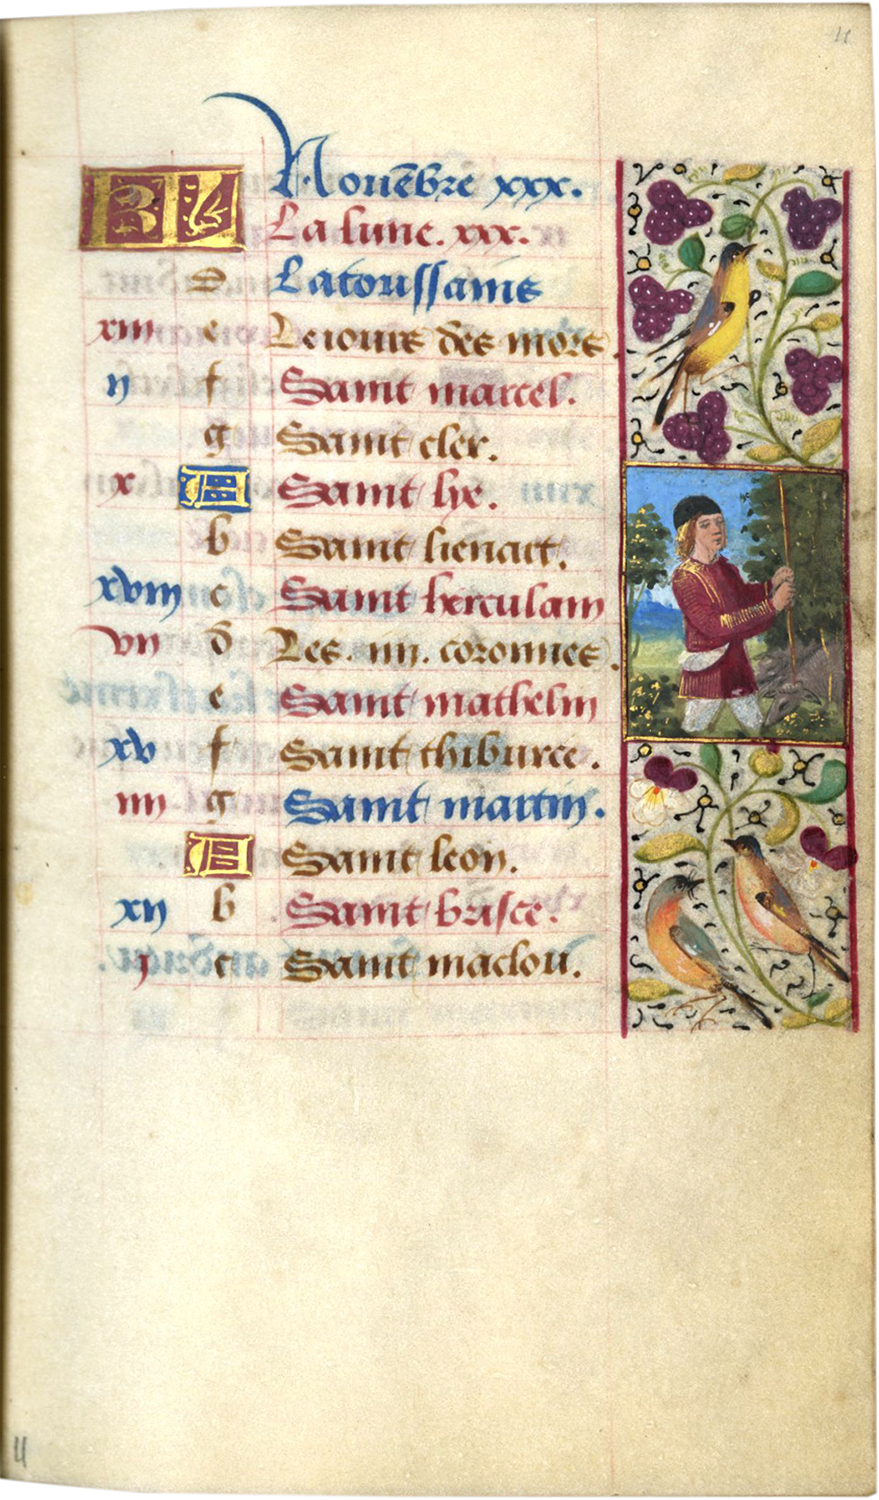 11
KL Nouẽbre xxx.
La lune. xxx.
d La toussains
xiii e Le iour des mors.
ii f Saint marcel.
g Saint cler.
x A Saint lye.
b Saint lienart.
xviii c Saint herculain
vii d Les .iiii. coronnes.
e Saint mathelin
xv f Saint thiburce.
iiii g Saint martin.
A Saint leon.
xii b Saint brisce.
i c Saint maclou.
11